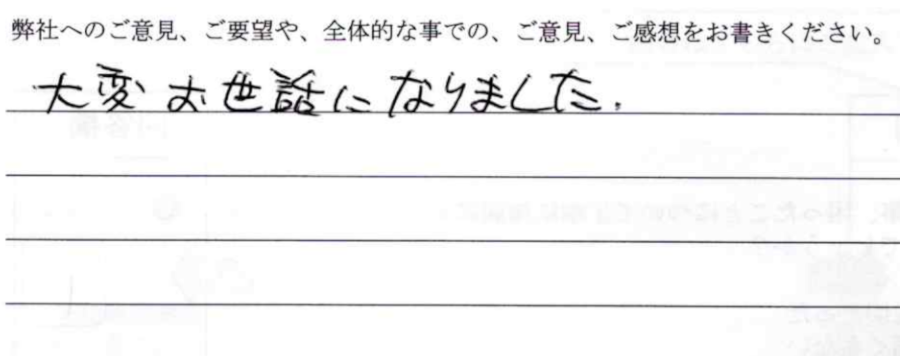 弊社へのご意見、ご要望や、全体的な事での、ご意見、ご感想をお書きください。
大変お世話になりました.